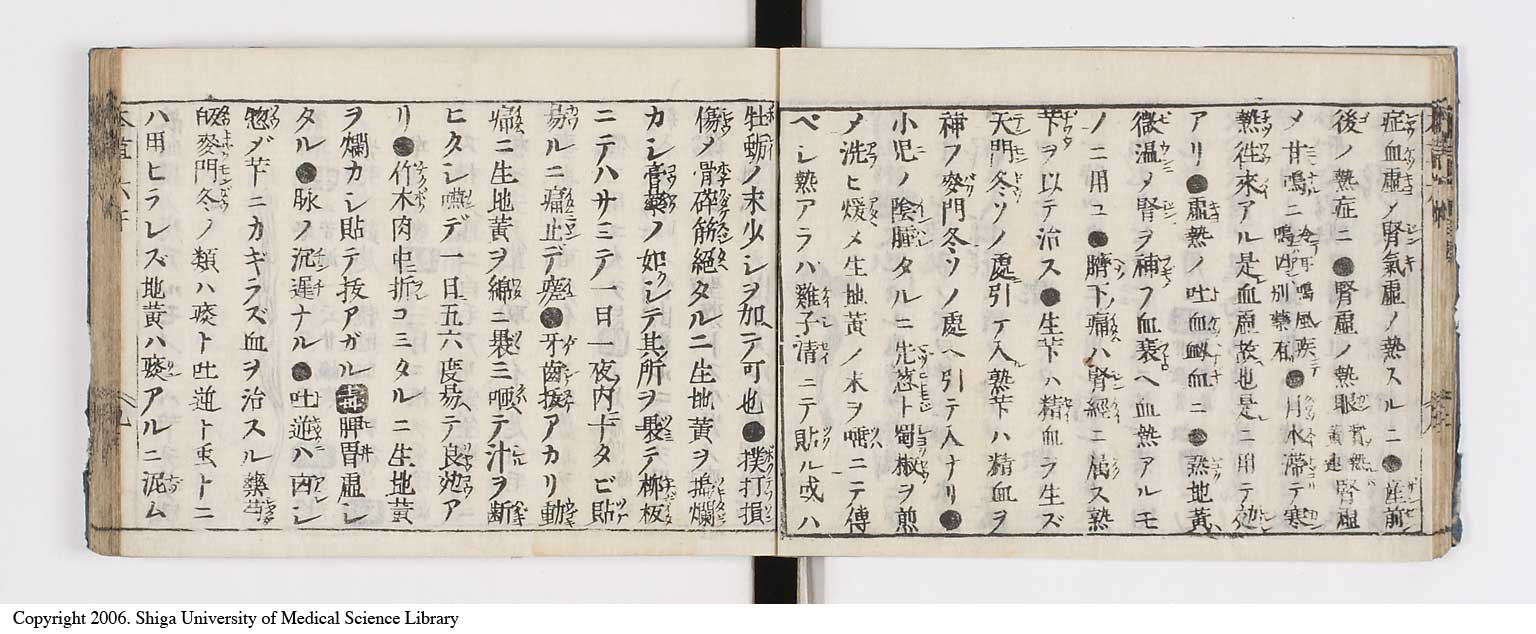 症血虚ノ腎氣虚ノ熱スルニ●産前
後ノ熱症ニ●腎虚ノ熱眼胃熱黄連腎虚
メ甘鳴ニ冷耳鳴風疾鳴凶別藥有●月水滞テ寒
熱往來アル是血虚故也是ニ用テ効
アリ●虚熱ノ吐血衂血ニ●熟地黄
微温メ腎ヲ補フ血衰ヘ血熱アルモ
ノニ用ユ●臍下ノ痛ハ腎經ニ属ス熟
芐ヲ以テ治ス●生芐ハ精血ヲ生ズ
天門冬ソノ處引テ入熟芐ハ精血ヲ
補フ麥門冬ソノ處ヘ引テ入ナリ●
小児ノ陰腫タルニ先葱ト蜀椒ヲ煎
メ洗ヒ煖メ生地黄ノ末ヲ嚅ニテ傳
ベシ熱アラハ雞子清ニテ貼ル或ハ
牡蛎ノ末少シヲ加ニテ可也●撲打損
傷メ骨碎筋絶タルニ生地黄ヲ搗爛
カシ膏藥ノ如クシテ其所ヲ裂テ柳板
ニテハサミテ一日一夜内十タビ貼
易ルニ痛止デ瘥●牙齒拔アカリ動
痛ニ生地黄ヲ綿ニ裹ミ咂テ汁ヲ断
ヒタシ嚥デ一日五六度易テ良効ア
リ●竹木肉中折コミタルニ生地黄
ヲ爛カシ貼テ抜アガル 脾胃虚シ
タル●脉ノ沉遅ナル●吐逆ハ凶シ
惣ダ芐ニカギラズ血ヲ治スル藥芎
皈麥門冬ノ類ハ痰ト吐逆ト虫トニ
ハ用ヒラレズ地黄ハ痰アルニ泥ム